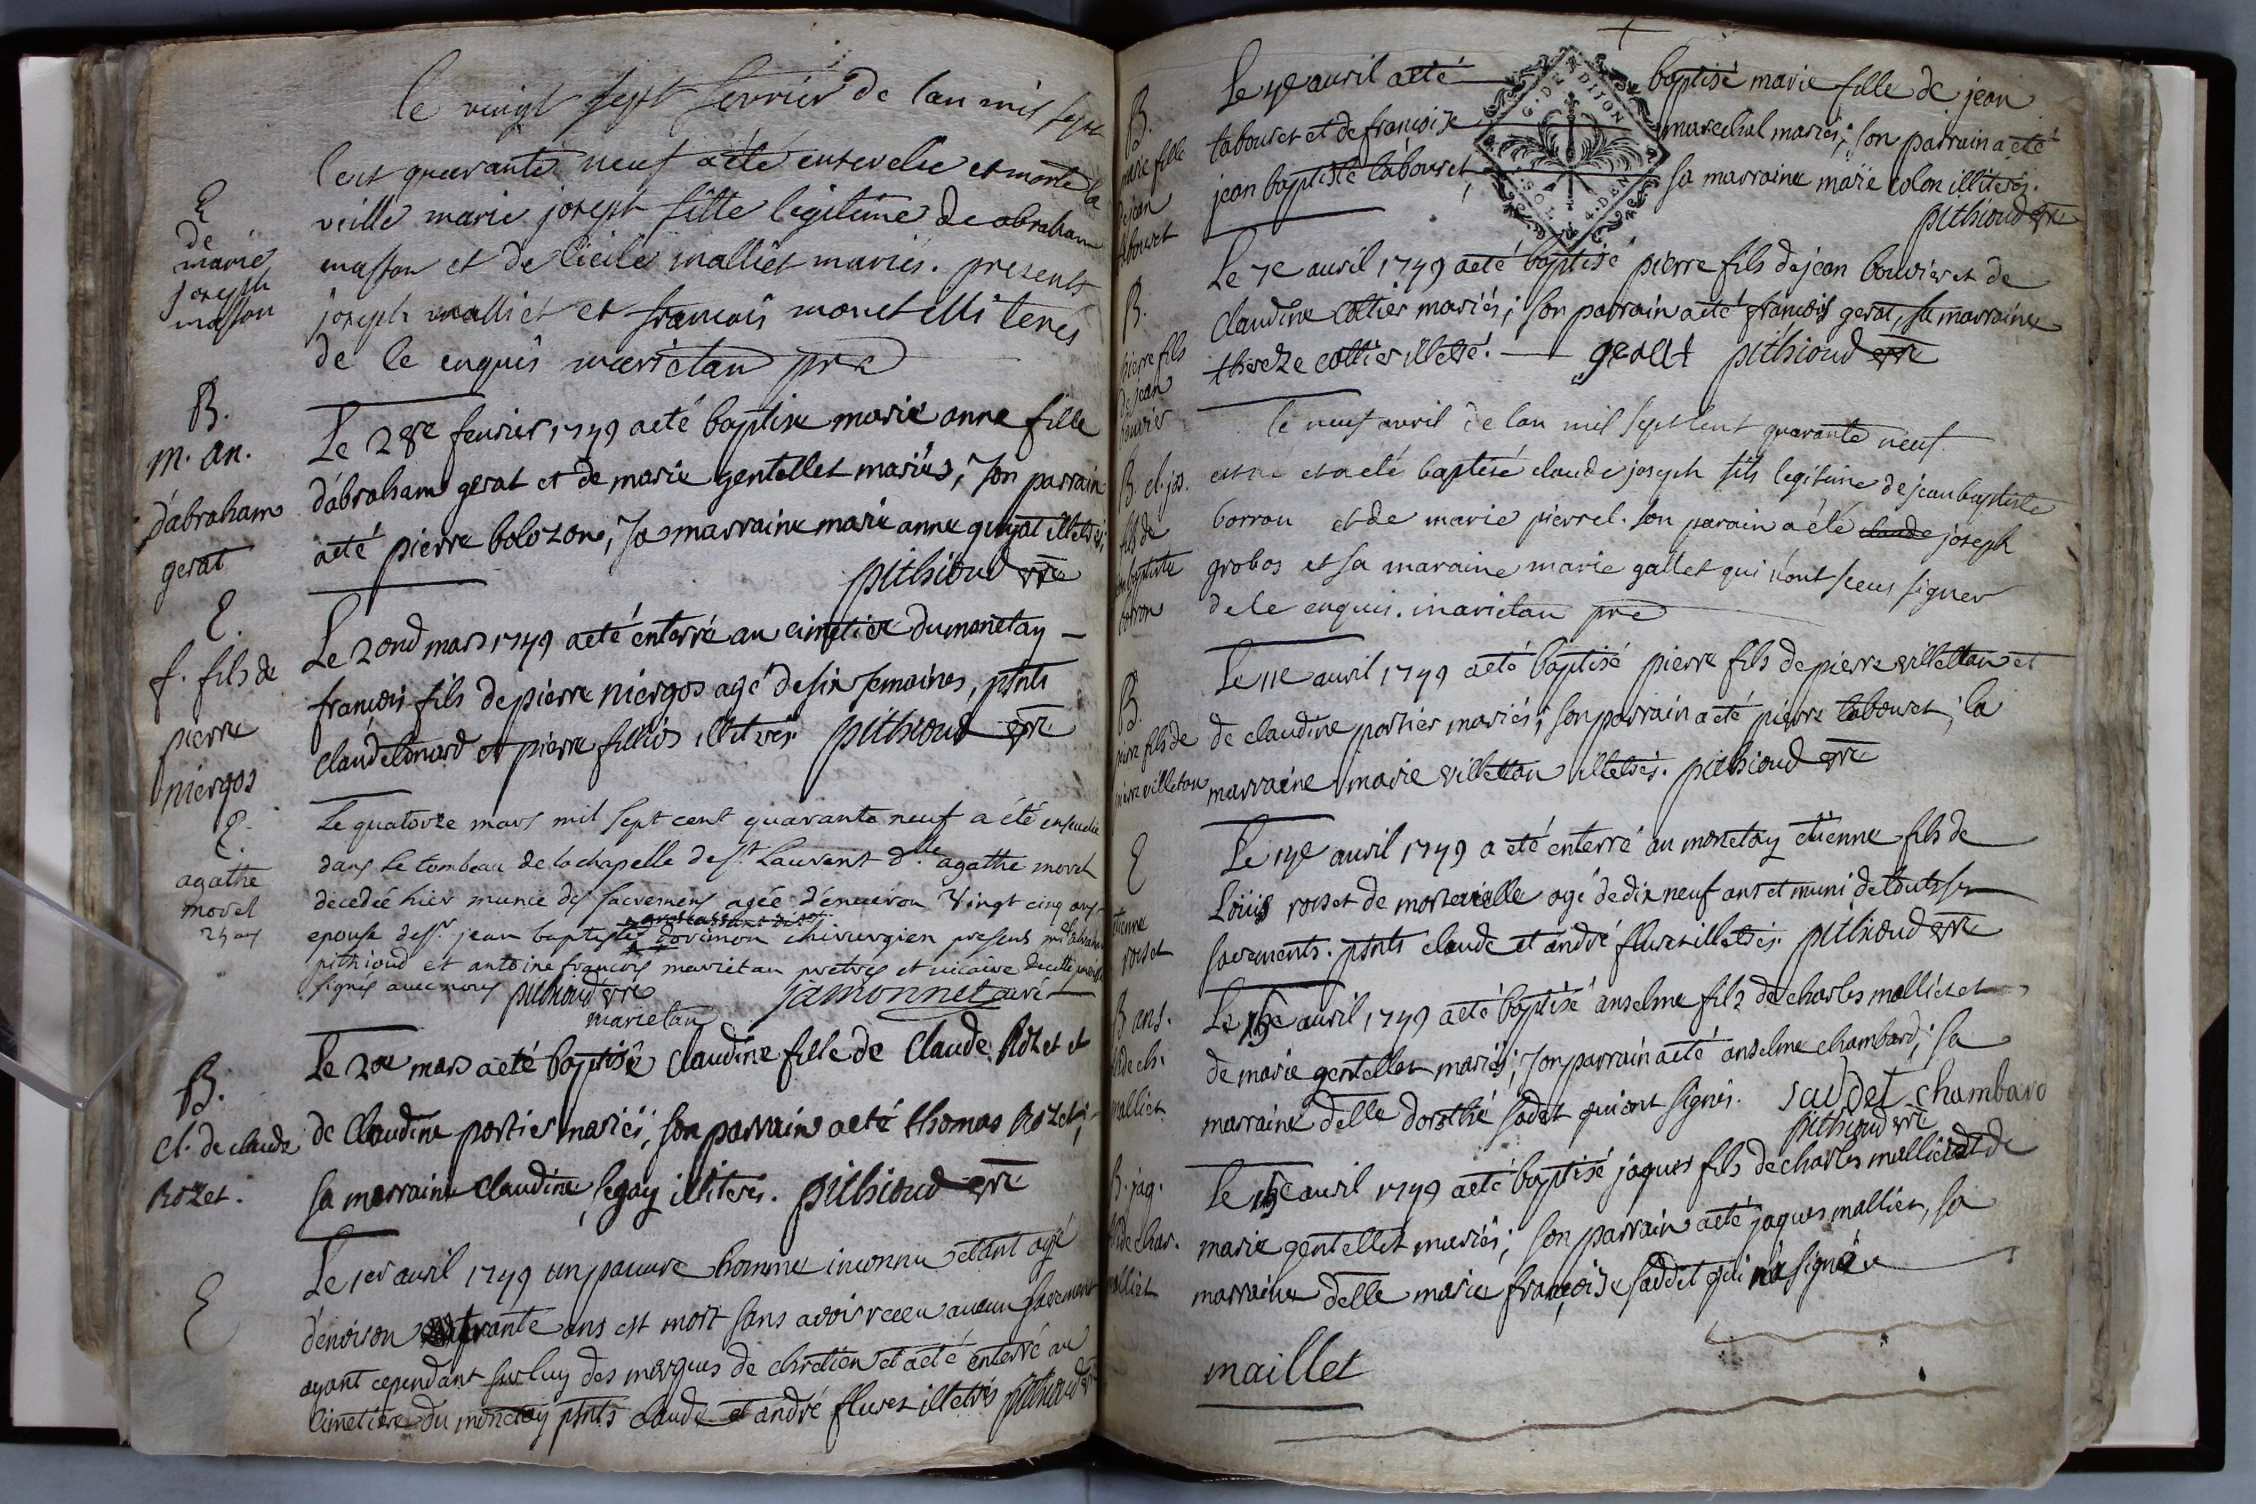 le vingt sept fevrier de lan mil sept
cent quarante neuf a été ensevelie et morte la
veille marie joseph fille legitime de abraham
masson et de Cicile malliet mariés. presents
joseph malliet et francois monet illiterés
de le enquis marietan pre
E
de
marie
joseph
masson
B.
m. an.
d'abraham
gerat
Le 28e fevrier 1749 a eté baptisé marie anne fille
d'abraham gerat et de marie gentellet mariés, son parrain
a eté pierre bolozon, sa marraine marie anne guyat illetrés;
pithioud vre
E.
f. fils de
pierre
niergos
Le 2ond mars 1749 a eté enterré au cimetiere du monetay
francois fils de pierre niergos agé de six semaines, ptnts
claude lonard et pierre fillios illitrés. pithioud vre
E.
agathe
morel
25 ans
Le quatorze mars mil sept cent quarante neuf a été ensevelie
dans le tombeau de la chapelle de st. Laurent dlle agathe morel
decedée hier munie des sacremens agée d'environ vingt cinq ans
epouse de sr. jean baptiste dorimon chirurgien presens mrs abraham
pithioud et antoine francois marietan pretres et vicaire de cette paroisse
signés avec nous pithioud vre jamonnet curé
marietan
B.
cl. de claude
Rozet.
Le 20e mars a eté baptisée Claudine fille de Claude Rozet et
de Claudine portier mariés, son parrain a eté thomas Rozet;
sa marraine Claudine segay illiterés. pithioud vre
E
Le 1er avril 1749 un pauvre homme inconnu etant agé
d'environ trante ans est mort sans avoir receu aucun sacrement
ayant cependant sur luy des marques de chretien et a eté enterré au
cimetiere du monetay ptnts claude et andré fluret illetrés pithioud vre
B.
marie fille
de jean
tabouret
G. DE DIJON
SOL
4. DEN
Le 4e avril a eté baptisé marie fille de jean
tabouret et de francoise marechal mariés; son parrain a eté
jean baptiste tabouret, sa marraine marie colon illiterés.
pithioud vre
B.
pierre fils
de jean
bouvier
Le 7e avril 1749 a eté baptisé pierre fils de jean bouvier et de
claudine cottier mariés; son parrain a eté francois gerat, sa marraine
thereze cottier illetré. geralt pithioud vre
B. cl. jos.
fils de
jean baptiste
borron
le neuf avril de lan mil sept cent quarante neuf
est né et a eté baptisé claude joseph fils legitime de jean baptiste
borron et de marie pierrel. son parain a été claude joseph
grobos et sa maraine marie gallet qui n'ont sceus signer
de le enquis. marietan pre
B.
pierre fils de
pierre villetan
Le 11e avril 1749 a eté baptisé pierre fils de pierre villettan et
de claudine portier mariés; son parrain a eté pierre tabouret; la
marraine marie villettan illetrés. pithioud vre
E
etienne
roset
Le 14e avril 1749 a eté enterré au monetay etienne fils de
Louis roset de morteville agé de dix neuf ans et muni de touts ses
sacrements. ptnts claude et andré fluret illetrés. pithioud vre
B ans.
fils de ch.
malliet
Le 15e avril 1749 a eté baptisé anselme fils de charles malliet et
de marie gentellet mariés; son parrain a eté anselme chambard; sa
marraine delle dorothé sadet qui ont signés. saddet chambard
pithioud vre
B. jaq.
fils de char.
malliet
Le 15e avril 1749 a eté baptisé jaques fils de charles malliet et de
marie gentellet mariés; son parrain a eté jaques malliet, sa
marraine delle marie françoise saddet qui n'a signée
maillet